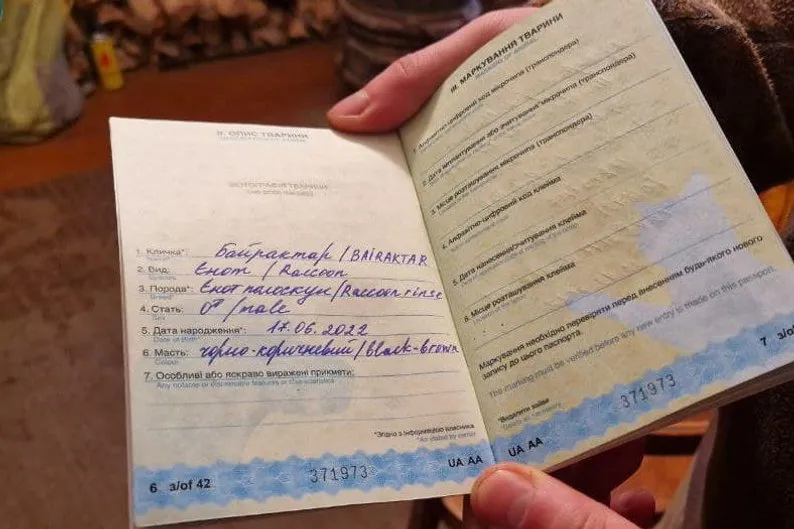 II. ОПИС ТВАРИНИ
ФОТОГРАФІЯ ТВАРИНИ
1. Кличка*: Байрактар / BAIRAKTAR
2. Вид: Єнот / Racoon
Species
3. Порода*: Єнот полоскун / Racoon rinse
Breed*
4. Стать: ♂ / male
Sex
5. Дата народження*: 17.06.2022
Date of Birth*
6. Масть: чорно-коричневий / black-brown
Colour
7. Особливі або яскраво виражені прикмети:
Any notable or discernable features or characteristics
*Згідно з інформацією власника
*As stated by owner
6 з/of 42
371973
UA AA
III. МАРКУВАННЯ ТВАРИНИ
MARKING OF ANIMAL
1. Алфавітно-цифровий код мікрочіпа (транспондера)
2. Дата імплантування або зчитування* мікрочіпа (транспондера)
3. Місце розташування мікрочіпа (транспондера)
4. Алфавітно-цифровий код клейма
5. Дата нанесення/зчитування клейма
6. Місце розташування клейма
Маркування необхідно перевіряти перед внесенням будь-якого нового
запису до цього паспорта.
The marking must be verified before any new entry to made on this passport.
*Видалити зайве
UA AA
371973
7 з/